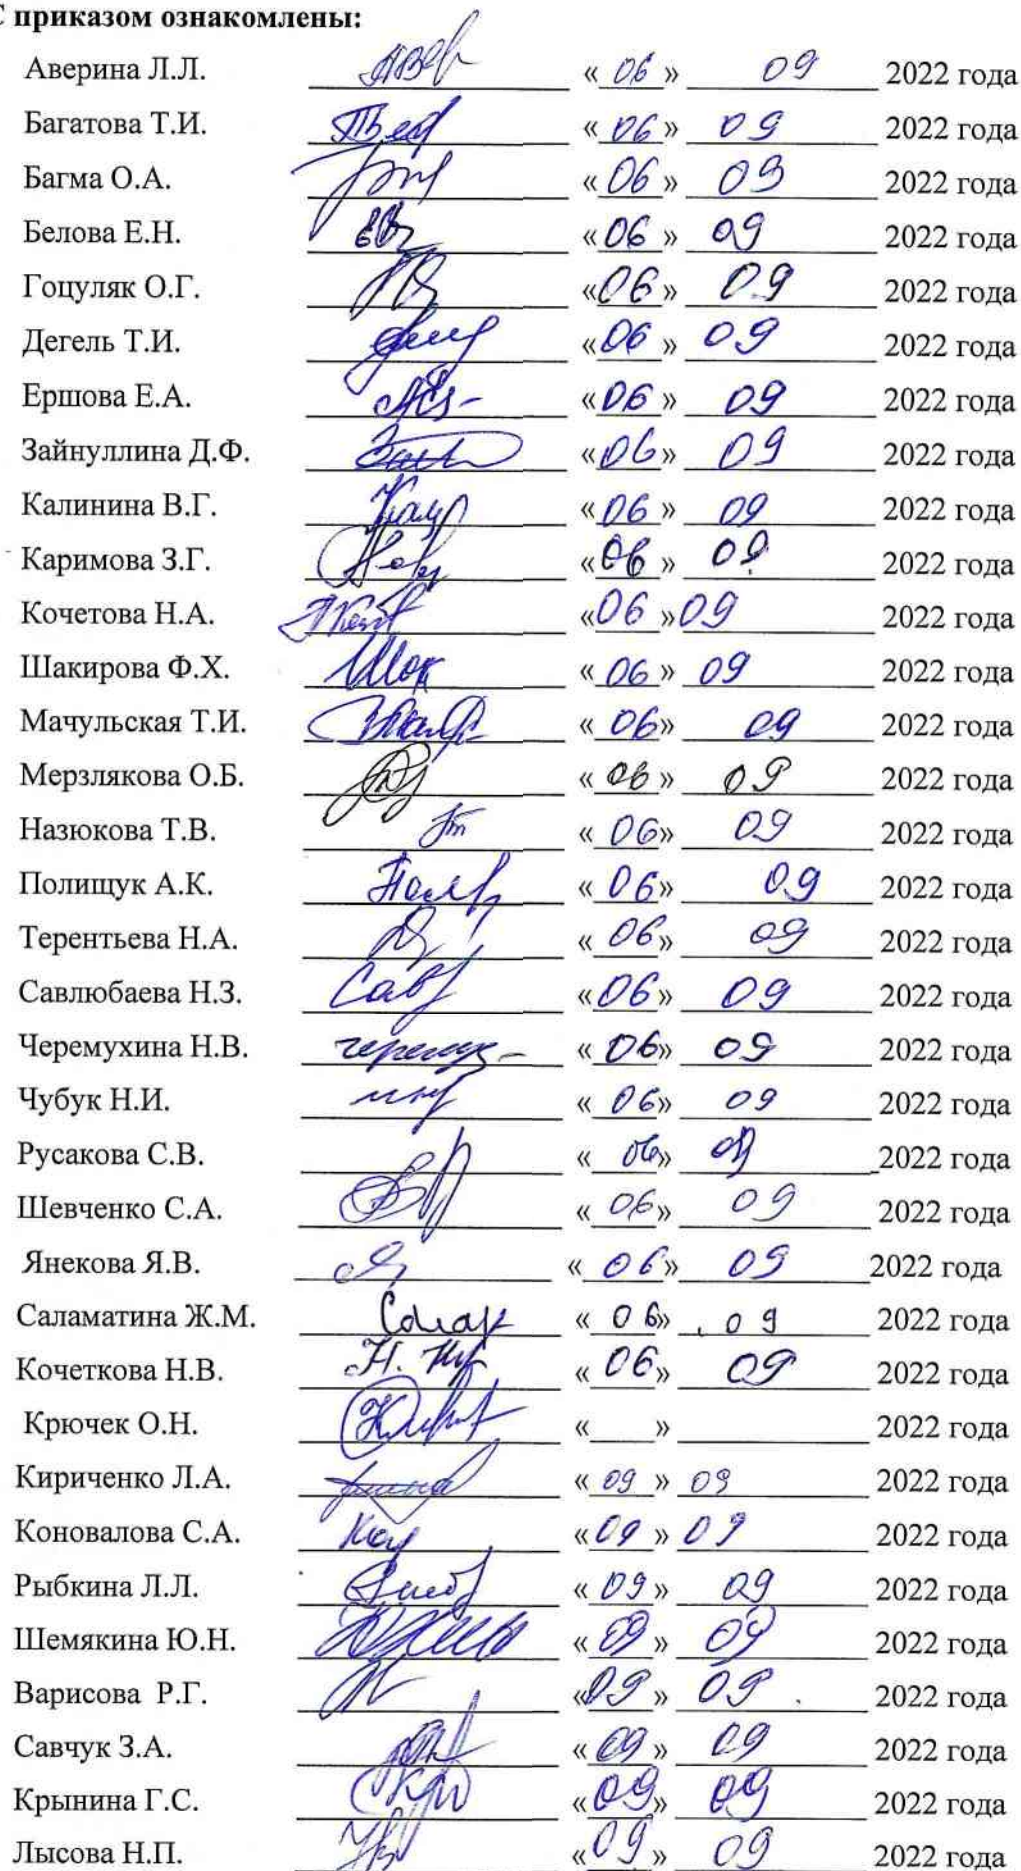 С приказом ознакомлены:
Аверина Л.Л. « 06 » 09 2022 года
Багатова Т.И. « 06 » 09 2022 года
Багма О.А. « 06 » 09 2022 года
Белова Е.Н. « 06 » 09 2022 года
Гоцуляк О.Г. « 06 » 09 2022 года
Дегель Т.И. « 06 » 09 2022 года
Ершова Е.А. « 06 » 09 2022 года
Зайнуллина Д.Ф. « 06 » 09 2022 года
Калинина В.Г. « 06 » 09 2022 года
Каримова З.Г. « 06 » 09 2022 года
Кочетова Н.А. « 06 » 09 2022 года
Шакирова Ф.Х. « 06 » 09 2022 года
Мачульская Т.И. « 06 » 09 2022 года
Мерзлякова О.Б. « 06 » 09 2022 года
Назюкова Т.В. « 06 » 09 2022 года
Полищук А.К. « 06 » 09 2022 года
Терентьева Н.А. « 06 » 09 2022 года
Савлюбаева Н.З. « 06 » 09 2022 года
Черемухина Н.В. « 06 » 09 2022 года
Чубук Н.И. « 06 » 09 2022 года
Русакова С.В. « 06 » 09 2022 года
Шевченко С.А. « 06 » 09 2022 года
Янекова Я.В. « 06 » 09 2022 года
Саламатина Ж.М. « 06 » 09 2022 года
Кочеткова Н.В. « 06 » 09 2022 года
Крючек О.Н. « » 2022 года
Кириченко Л.А. « 09 » 09 2022 года
Коновалова С.А. « 09 » 09 2022 года
Рыбкина Л.Л. « 09 » 09 2022 года
Шемякина Ю.Н. « 09 » 09 2022 года
Варисова Р.Г. « 09 » 09 2022 года
Савчук З.А. « 09 » 09 2022 года
Крынина Г.С. « 09 » 09 2022 года
Лысова Н.П. « 09 » 09 2022 года